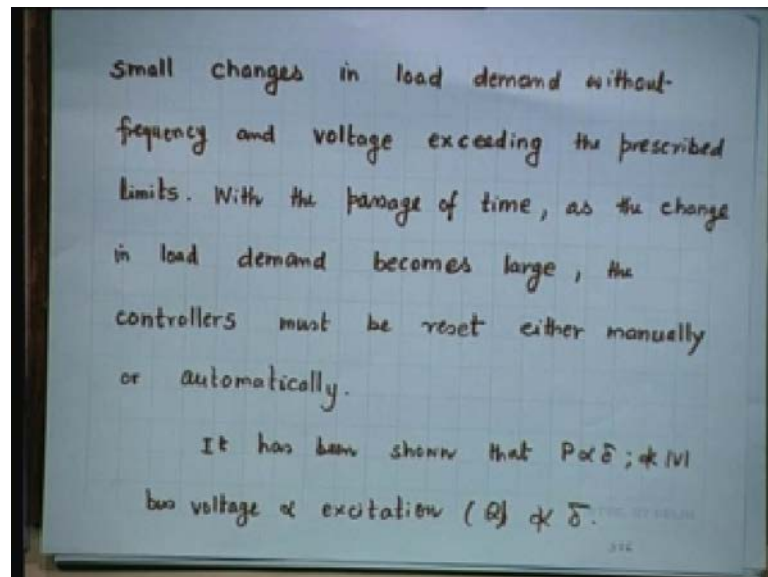 Small changes in load demand without
frequency and voltage exceeding the prescribed
limits. With the passage of time, as the change
in load demand becomes large, the
controllers must be reset either manually
or automatically.
It has been shown that P∝δ; ∝̸ |V|
bus voltage ∝ excitation (Q) ∝̸ δ.